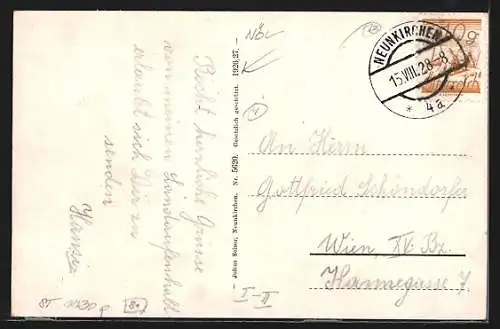 Recht herzliche Grüsse
von meinem Landaufenthalt
erlaubt sich Dir zu
senden
Hansi
NÖL
Julius Belna, Neunkirchen. Nr. 5620. Gesetzlich geschützt. 1926/27.
I-II
NEUNKIRCHEN
15.VIII.28-8
* 4a
An Herrn
Gottfried Schöndorfer
Wien, XV. Bz.
Hannegasse 7.